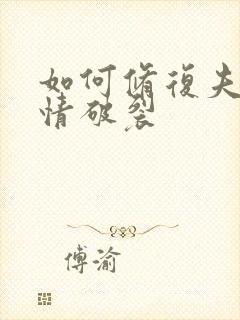 如何修復夫
情破裂
傅渝